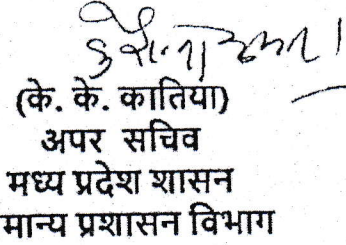 (के. के. कातिया)
अपर सचिव
मध्य प्रदेश शासन
मान्य प्रशासन विभाग